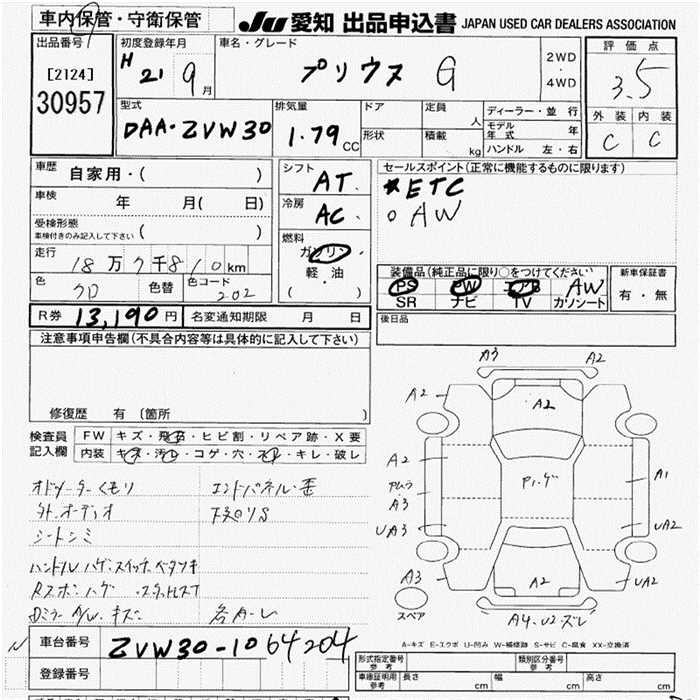 車内保管・守衛保管
JU 愛知 出品申込書 JAPAN USED CAR DEALERS ASSOCIATION
出品番号 初度登録年月 車名・グレード 評価点
[2124] H 21 9月 プリウス G 2WD・4WD 3.5
30957
型式 排気量 ドア 定員 人 ディーラー・並行 外装 内装
DAA-ZVW30 1.79 CC 形状 積載 kg モデル年式 年 C C
ハンドル 左・右
車歴 自家用・( ) シフト AT. セールスポイント(正常に機能するものに限ります)
*ETC
車検 年 月( 日) 冷房 AC. ○AW
受検形態 ( )
車検付きのみ記入して下さい
燃料 ガソリン
走行 18万7千810km 軽・油
色 クロ 色替 色コード 202 ( )
装備品(純正品に限り○をつけてください) 新車保証書
PS PW エアB AW 有・無
SR ナビ TV カワシート
R券 13,190円 名変通知期限 月 日 後日品
注意事項申告欄(不具合内容等は具体的に記入して下さい)
修復歴 有(箇所 )
検査員 FW キズ・飛石・ヒビ割・リペア跡・X要
記入欄 内装 キズ・汚レ・コゲ・穴・ネジ・キレ・破レ
オドメーターくもり
外.オーディオ 下廻りS
シートシミ
A3 A2
A2 A2
A2 A1
A3
UA3 UA2
A3 A2 UA2
スペア A4.U2ズレ
車台番号 ZVW30-1064204
登録番号
A-キズ E-エクボ U-凹み W-補修跡 S-サビ C-腐食 XX-交換済
形式指定番号 参考 類別区分番号 参考
車庫証明用 参考 長さ cm 幅 cm 高さ cm